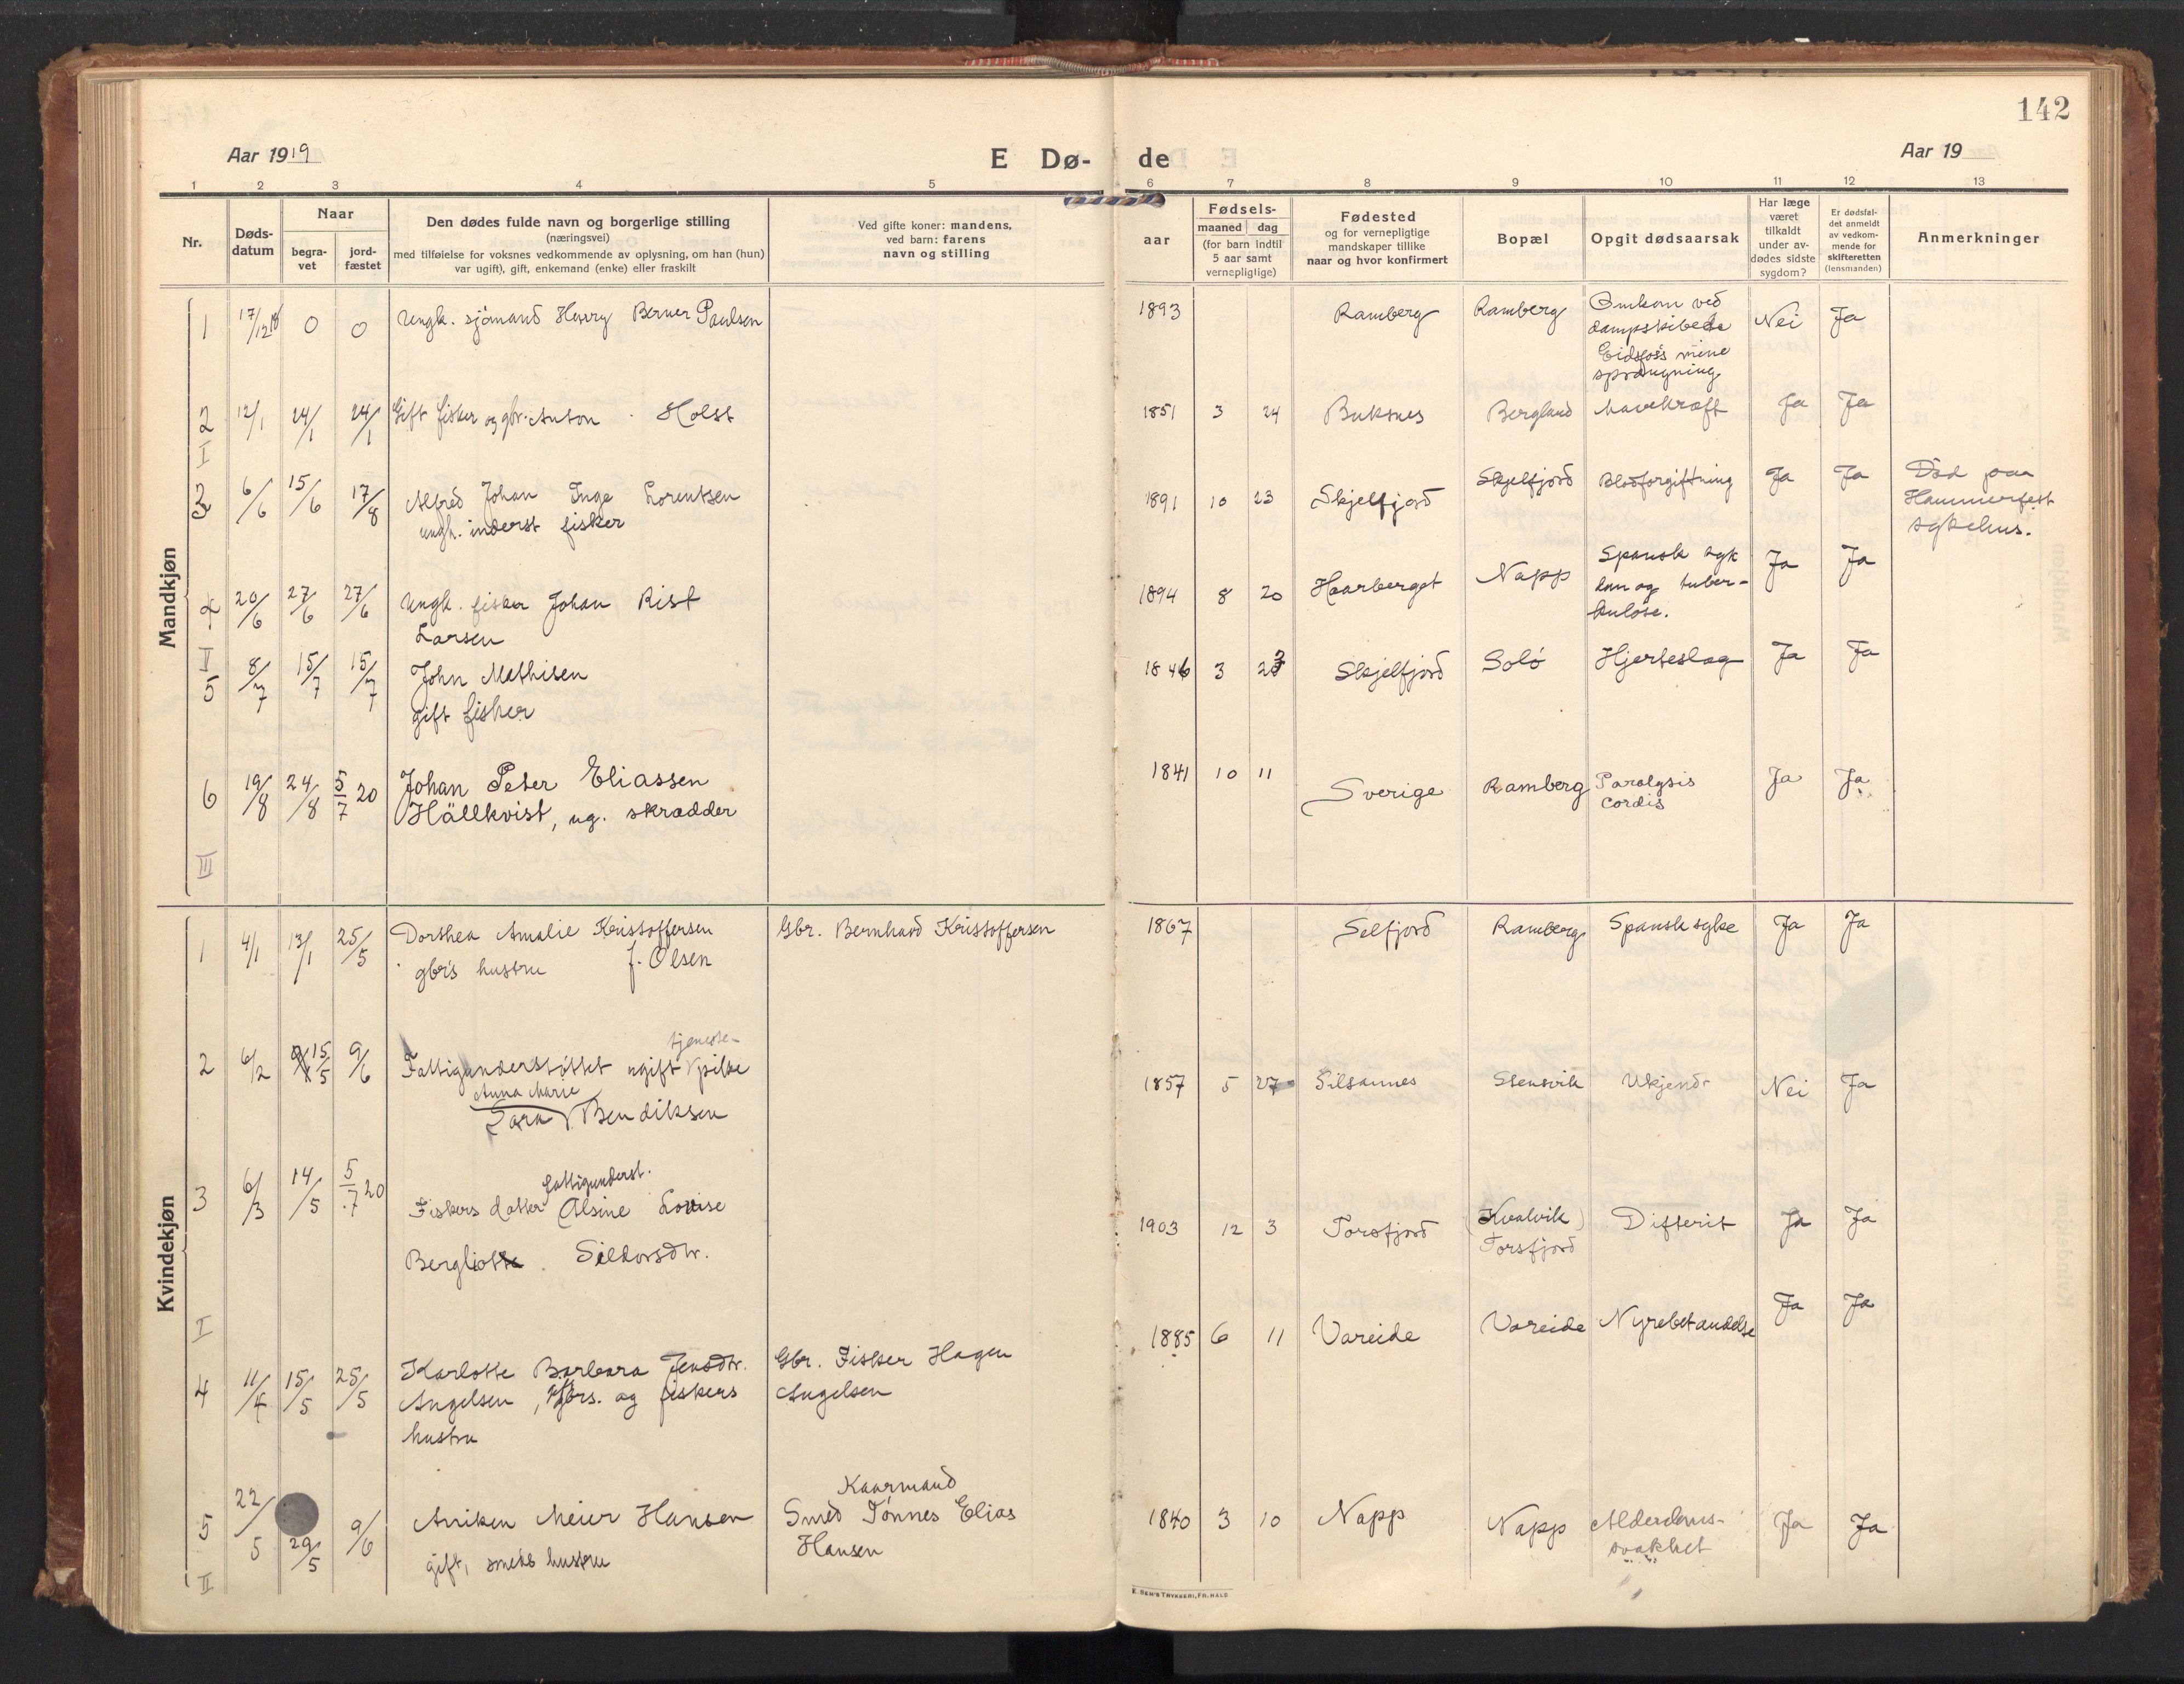 142
Aar 1919
E Dø- de
Aar 19
1 2 3 4 5 6 7 8 9 10 11 12 13
Nr.
Døds-
datum
Naar
begra-
vet
jord-
fæstet
Den dødes fulde navn og borgerlige stilling
(næringsvei)
med tilføielse for voksnes vedkommende av oplysning, om han (hun)
var ugift), gift, enkemand (enke) eller fraskilt
Ved gifte koner: mandens,
ved barn: farens
navn og stilling
Fødsels-
aar
maaned dag
(for barn indtil
5 aar samt
vernepligtige)
Fødested
og for vernepligtige
mandskaper tillike
naar og hvor konfirmert
Bopæl
Opgit dødsaarsak
Har læge
været
tilkaldt
under av-
dødes sidste
sygdom?
Er dødsfal-
det anmeldt
av vedkom-
mende for
skifteretten
(lensmanden)
Anmerkninger
Mandkjøn
1 17/12 18 0 0 Ungk. sjømand Harry Berner Paulsen 1893 Ramberg Ramberg Omkom ved Nei Ja
dampskibet
Eidsfos's mine
sprængning
2 12/1 24/1 24/1 Gift fisker og gbr. Anton Holst 1851 3 24 Buksnes Bergland Mavekræft Ja Ja
I
3 6/6 15/6 17/8 Alfred Johan Inge Lorentsen 1891 10 23 Skjelfjord Skjelfjord Blodforgiftning Ja Ja Død paa
ungk. inderst fisker Hammerfest
sykehus.
4 20/6 27/6 27/6 Ungk. fisker Johan Rist 1894 8 20 Haarberget Napp Spansk syk Ja Ja
Larsen
dom og tuber-
kulose.
II
5 8/7 15/7 15/7 John Mathisen 1846 3 23 Skjelfjord Solø Hjerteslag Ja Ja
gift fisker
6 19/8 24/8 5/7 20 Johan Peter Eliassen 1841 10 11 Sverige Ramberg Paralysis Ja Ja
Hällkvist, ug. skrædder cordis
III
Kvindekjøn
1 4/1 13/1 25/5 Dorthea Amalie Kristoffersen Gbr. Bernhard Kristoffersen 1867 Selfjord Ramberg Spansk syke Ja Ja
gbr's hustru f. Olsen
tjeneste-
2 6/2 15/5 9/6 Fattigunderstøttet ugift pike 1857 5 27 Silsannes Stensvik Ukjendt Nei Ja
Anna Marie
Sara Bendiksen
fattigunderst.
3 6/3 14/5 5/7 20 Fiskers datter Alsine Lovise 1903 12 3 Torsfjord (Kvalvik) Difterit Ja Ja
Torsfjord
Bergliotte Sildorsdtr.
I
4 11/4 15/5 25/5 Karlotte Barbara Jensdtr. Gbr. Fisker Hagen 1885 6 11 Vareide Vareide Nyrebetændelse Ja Ja
Angelsen, gbrs. og fiskers Angelsen
hustru
Kaarmand
5 22/5 29/5 9/6 Anniken Meier Hansen Smed Tønnes Elias 1840 3 10 Napp Napp Alderdoms- Ja Ja
gift, smeds hustru Hansen svakhet
II
E. SEM'S TRYKKERI, FR.HALD